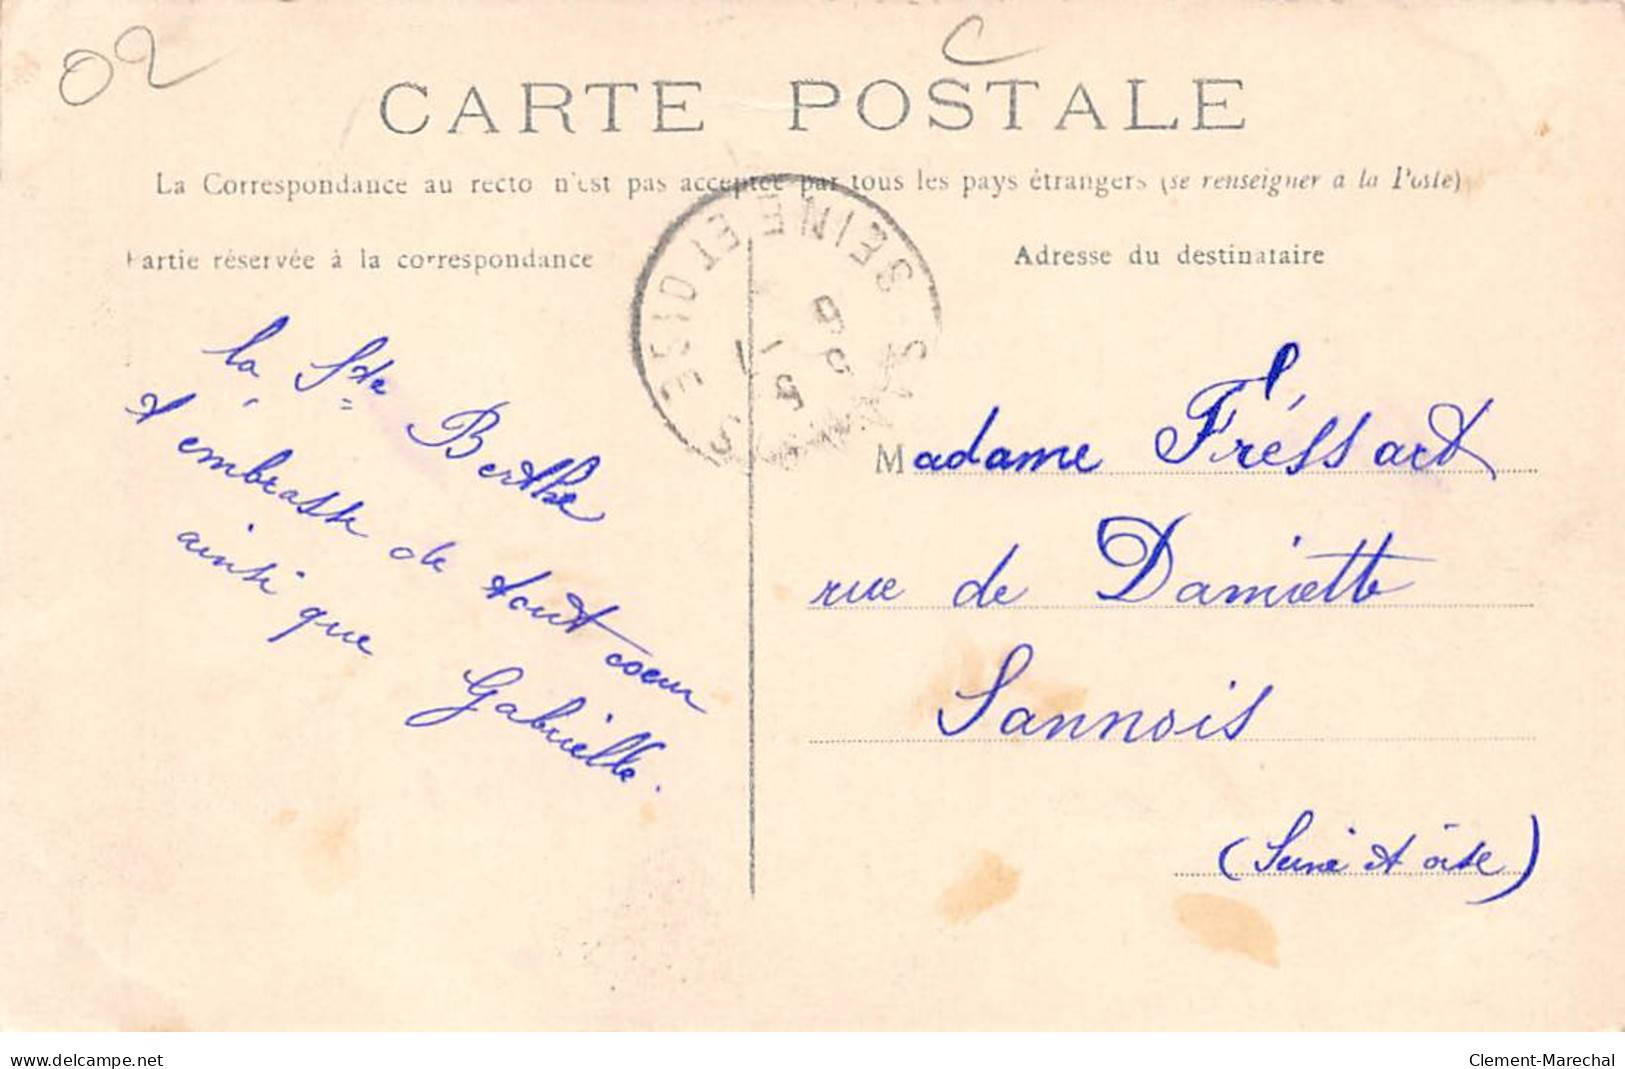 02
C
CARTE POSTALE
La Correspondance au recto n'est pas acceptée par tous les pays étrangers (se renseigner à la Poste)
Partie réservée à la correspondance
Adresse du destinataire
SEINE ET OISE
la Gde Berthe
t'embrasse de tout coeur
ainsi que Gabrielle.
Madame Fréssart
rue de Damiette
Sannois
(Seine et Oise)
www.delcampe.net
Clement-Marechal